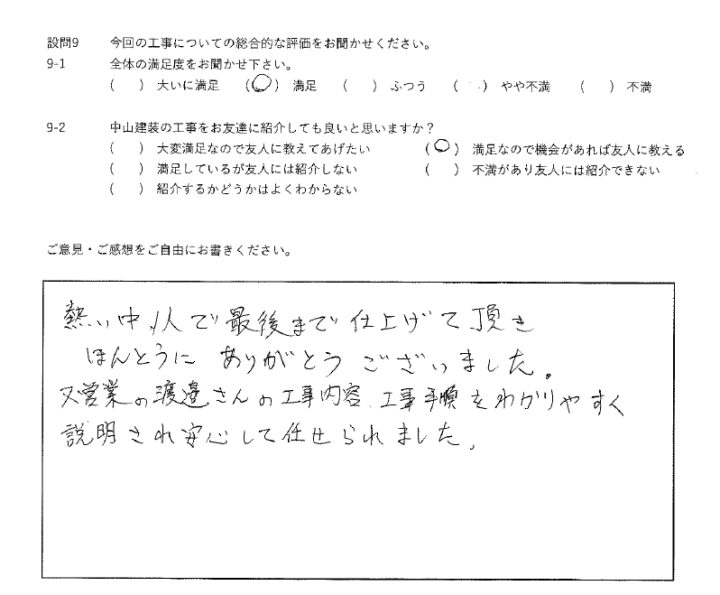 設問9 今回の工事についての総合的な評価をお聞かせください。
9-1 全体の満足度をお聞かせ下さい。
( ) 大いに満足 (○) 満足 ( ) ふつう ( ) やや不満 ( ) 不満
9-2 中山建装の工事をお友達に紹介しても良いと思いますか？
( ) 大変満足なので友人に教えてあげたい (○) 満足なので機会があれば友人に教える
( ) 満足しているが友人には紹介しない ( ) 不満があり友人には紹介できない
( ) 紹介するかどうかはよくわからない
ご意見・ご感想をご自由にお書きください。
熱い中1人で最後まで仕上げて頂き
ほんとうにありがとうございました。
又営業の渡邉さんの工事内容、工事手順をわかりやすく
説明され安心して任せられました。